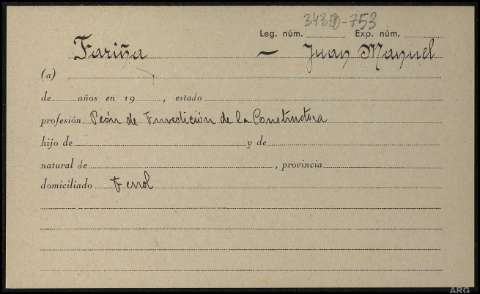 Leg. núm. Exp. núm. 753
Fariña — Juan Manuel
(a)
de años en 19 , estado
profesión Peón de Fundición de la Constructora
hijo de y de
natural de , provincia
domiciliado Ferrol
ARG